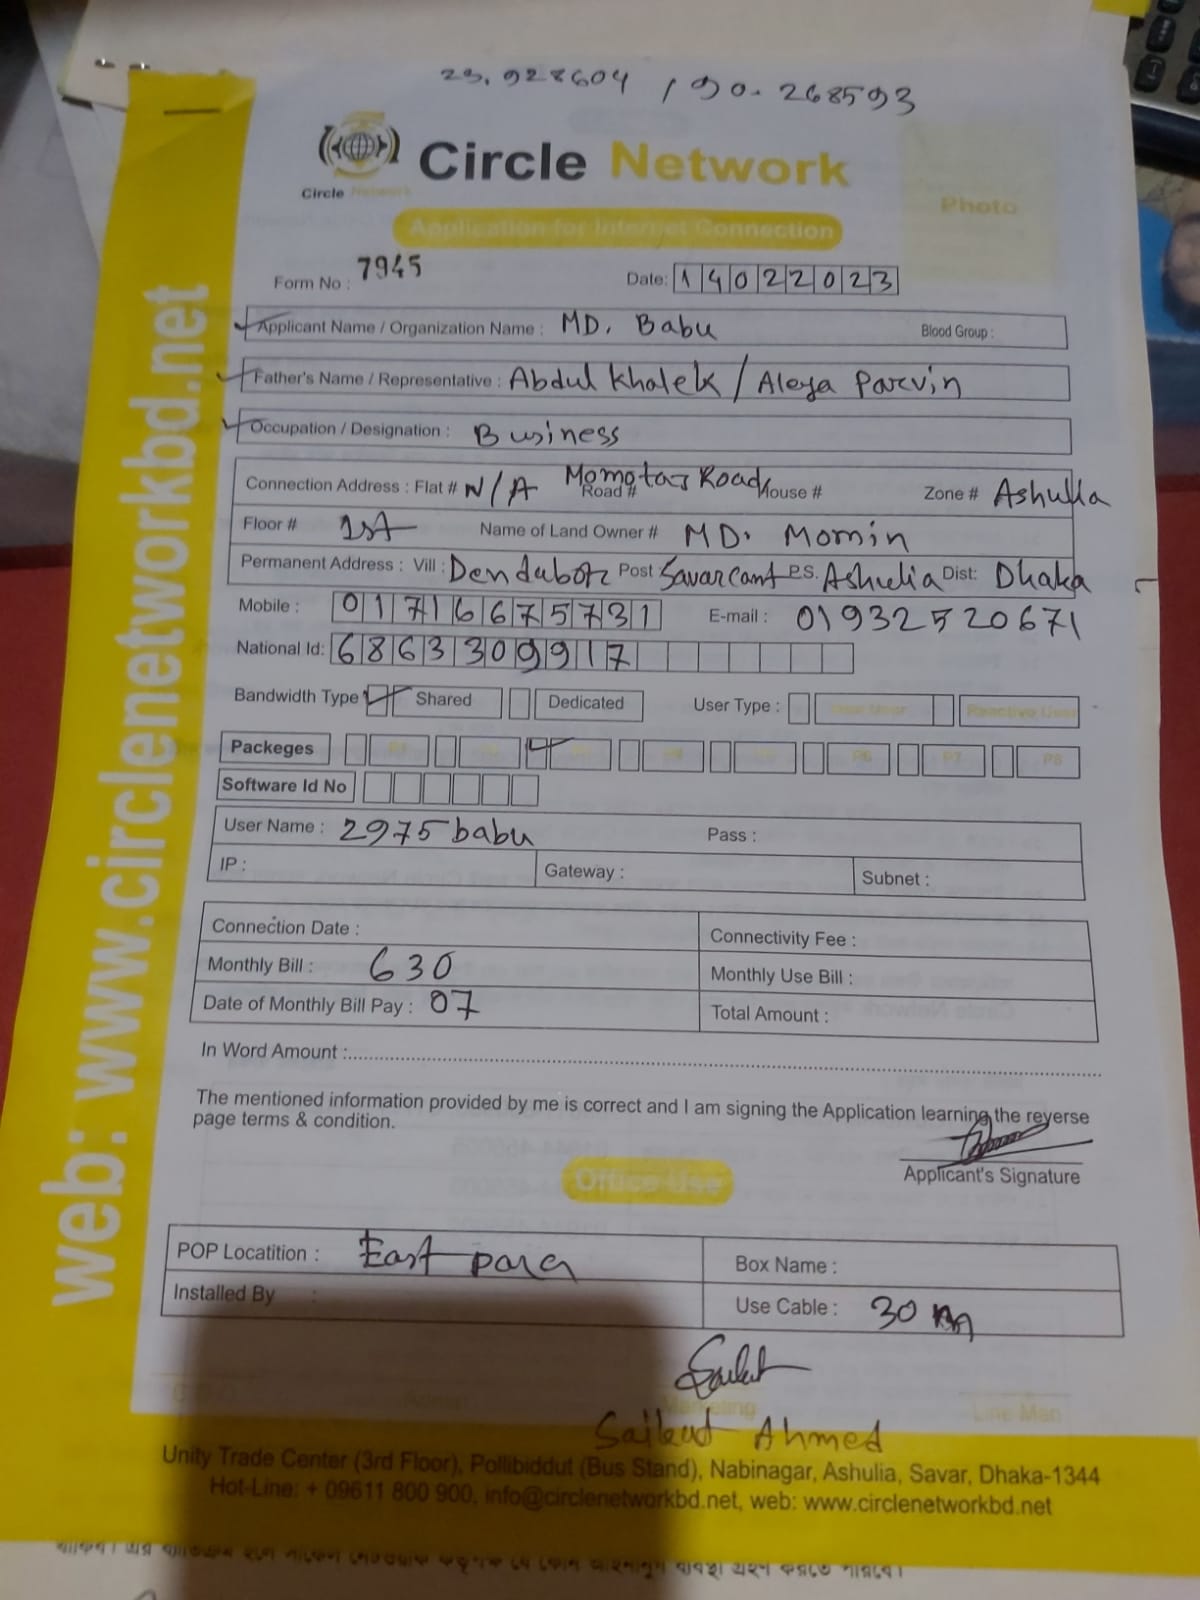 23.928604 / 90.268593
Circle Network
Circle Network
Photo
Application for Internet Connection
Form No : 7945
Date: 14022023
Applicant Name / Organization Name : MD. Babu Blood Group :
Father's Name / Representative : Abdul Khalek / Aleya Parvin
Occupation / Designation : Business
Connection Address : Flat # N/A Road # Momotaj Road House # Zone # Ashulia
Floor # 1st Name of Land Owner # MD. Momin
Permanent Address : Vill : Dendabor Post Savar cant P.S. Ashulia Dist: Dhaka
Mobile : 01716675731 E-mail : 01932520671
National Id: 6863309917
Bandwidth Type Shared Dedicated User Type : New User Reactive User
Packeges P1 P2 P3 P4 P5 P6 P7 P8
Software Id No
User Name : 2975babu Pass :
IP : Gateway : Subnet :
Connection Date : Connectivity Fee :
Monthly Bill : 630 Monthly Use Bill :
Date of Monthly Bill Pay : 07 Total Amount :
In Word Amount :
The mentioned information provided by me is correct and I am signing the Application learning the reverse
page terms & condition.
Applicant's Signature
Office Use
POP Locatition : East para Box Name :
Installed By : Use Cable : 30 m
Marketing Line Man
Saikat Ahmed
Unity Trade Center (3rd Floor), Pollibiddut (Bus Stand), Nabinagar, Ashulia, Savar, Dhaka-1344
Hot-Line: + 09611 800 900, info@circlenetworkbd.net, web: www.circlenetworkbd.net
web: www.circlenetworkbd.net